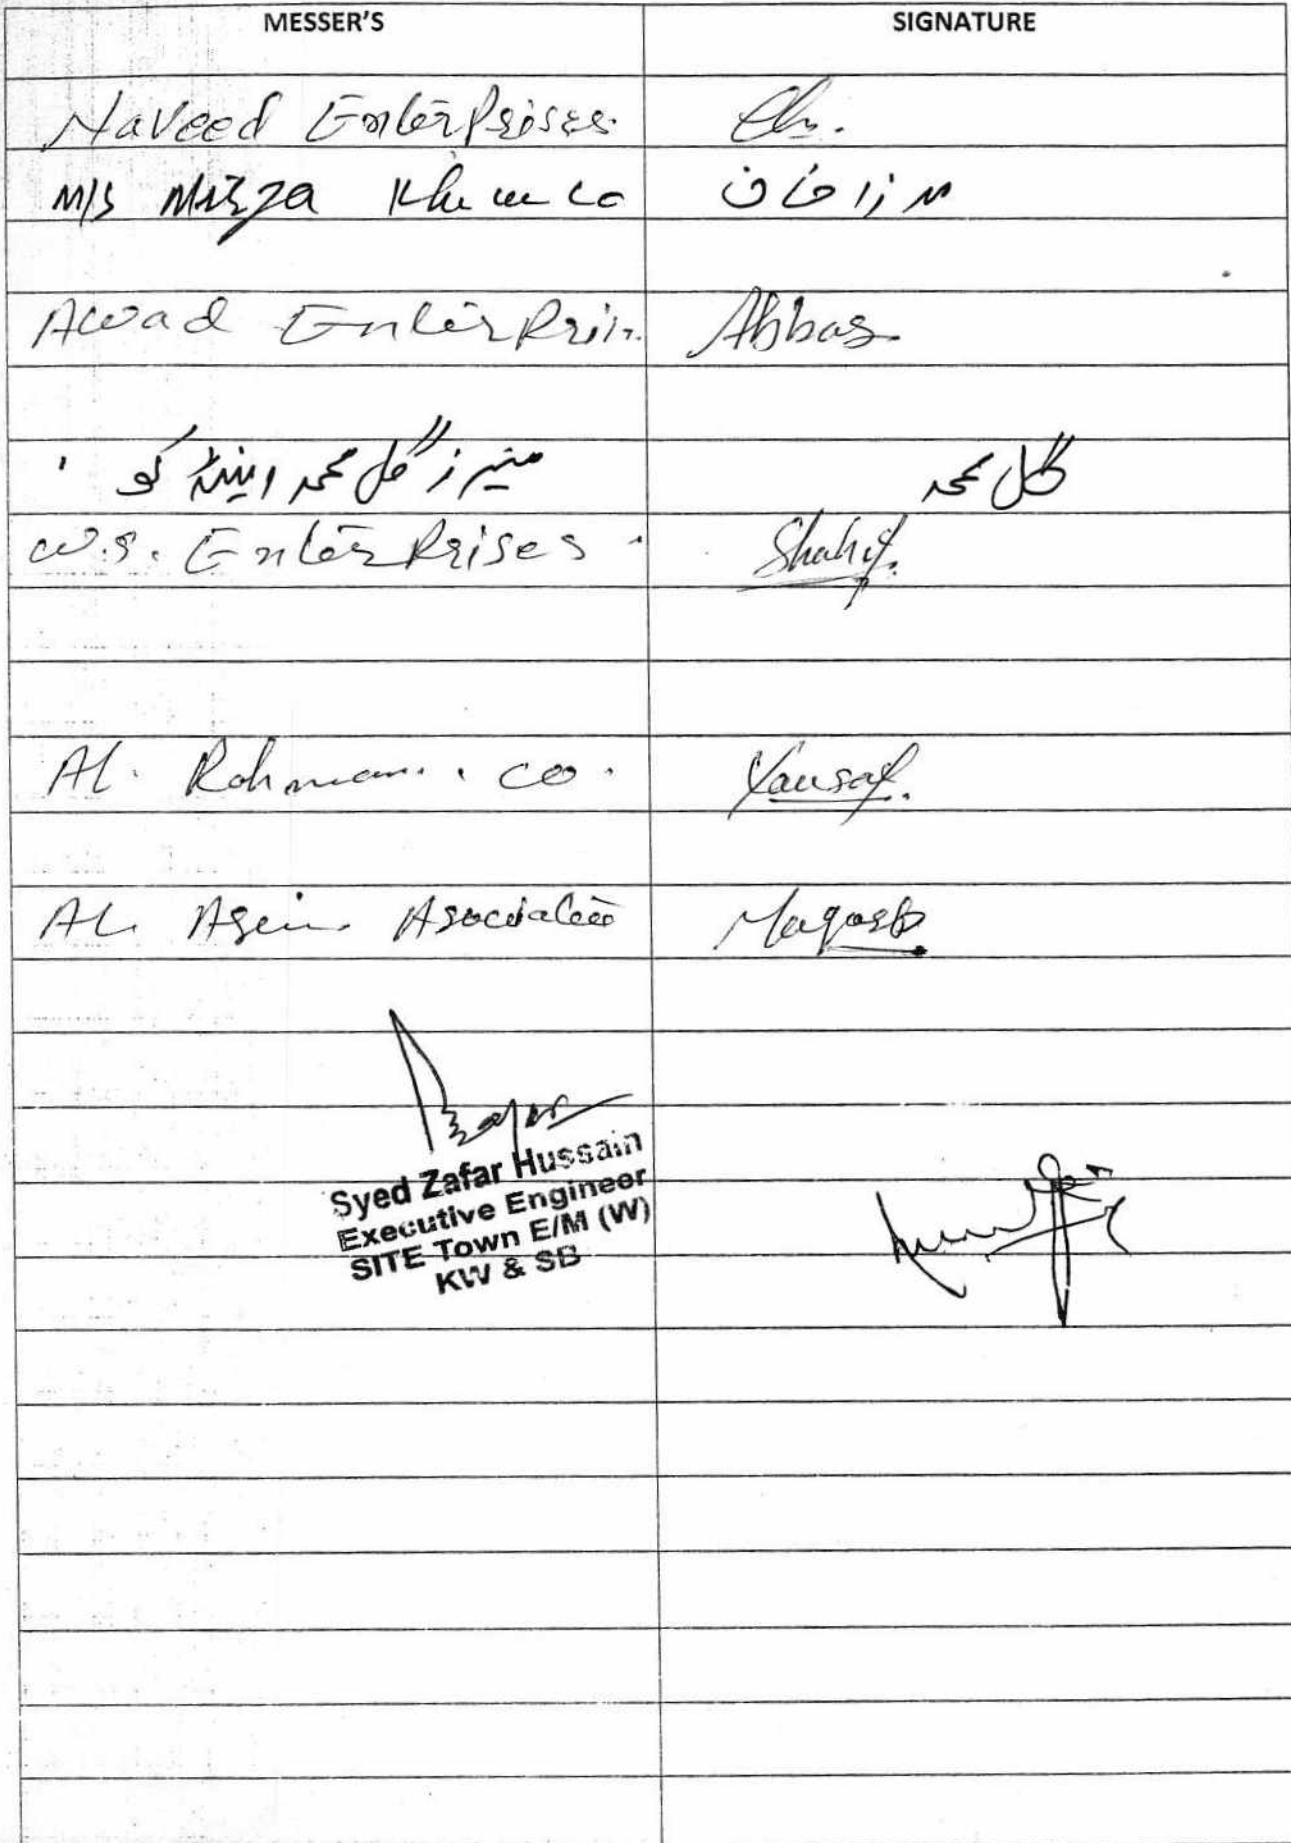 MESSER'S SIGNATURE
Naveed Enterprises
M/S Mirza Khan co مرزا خان
Awad Enterpris. Abbas
میسرز گل محمد اینڈ کو گل محمد
W.S. Enterprises. Shahif.
Al. Rahman. co. Yousaf.
AL Asociates
Syed Zafar Hussain
Executive Engineer
SITE Town E/M (W)
KW & SB